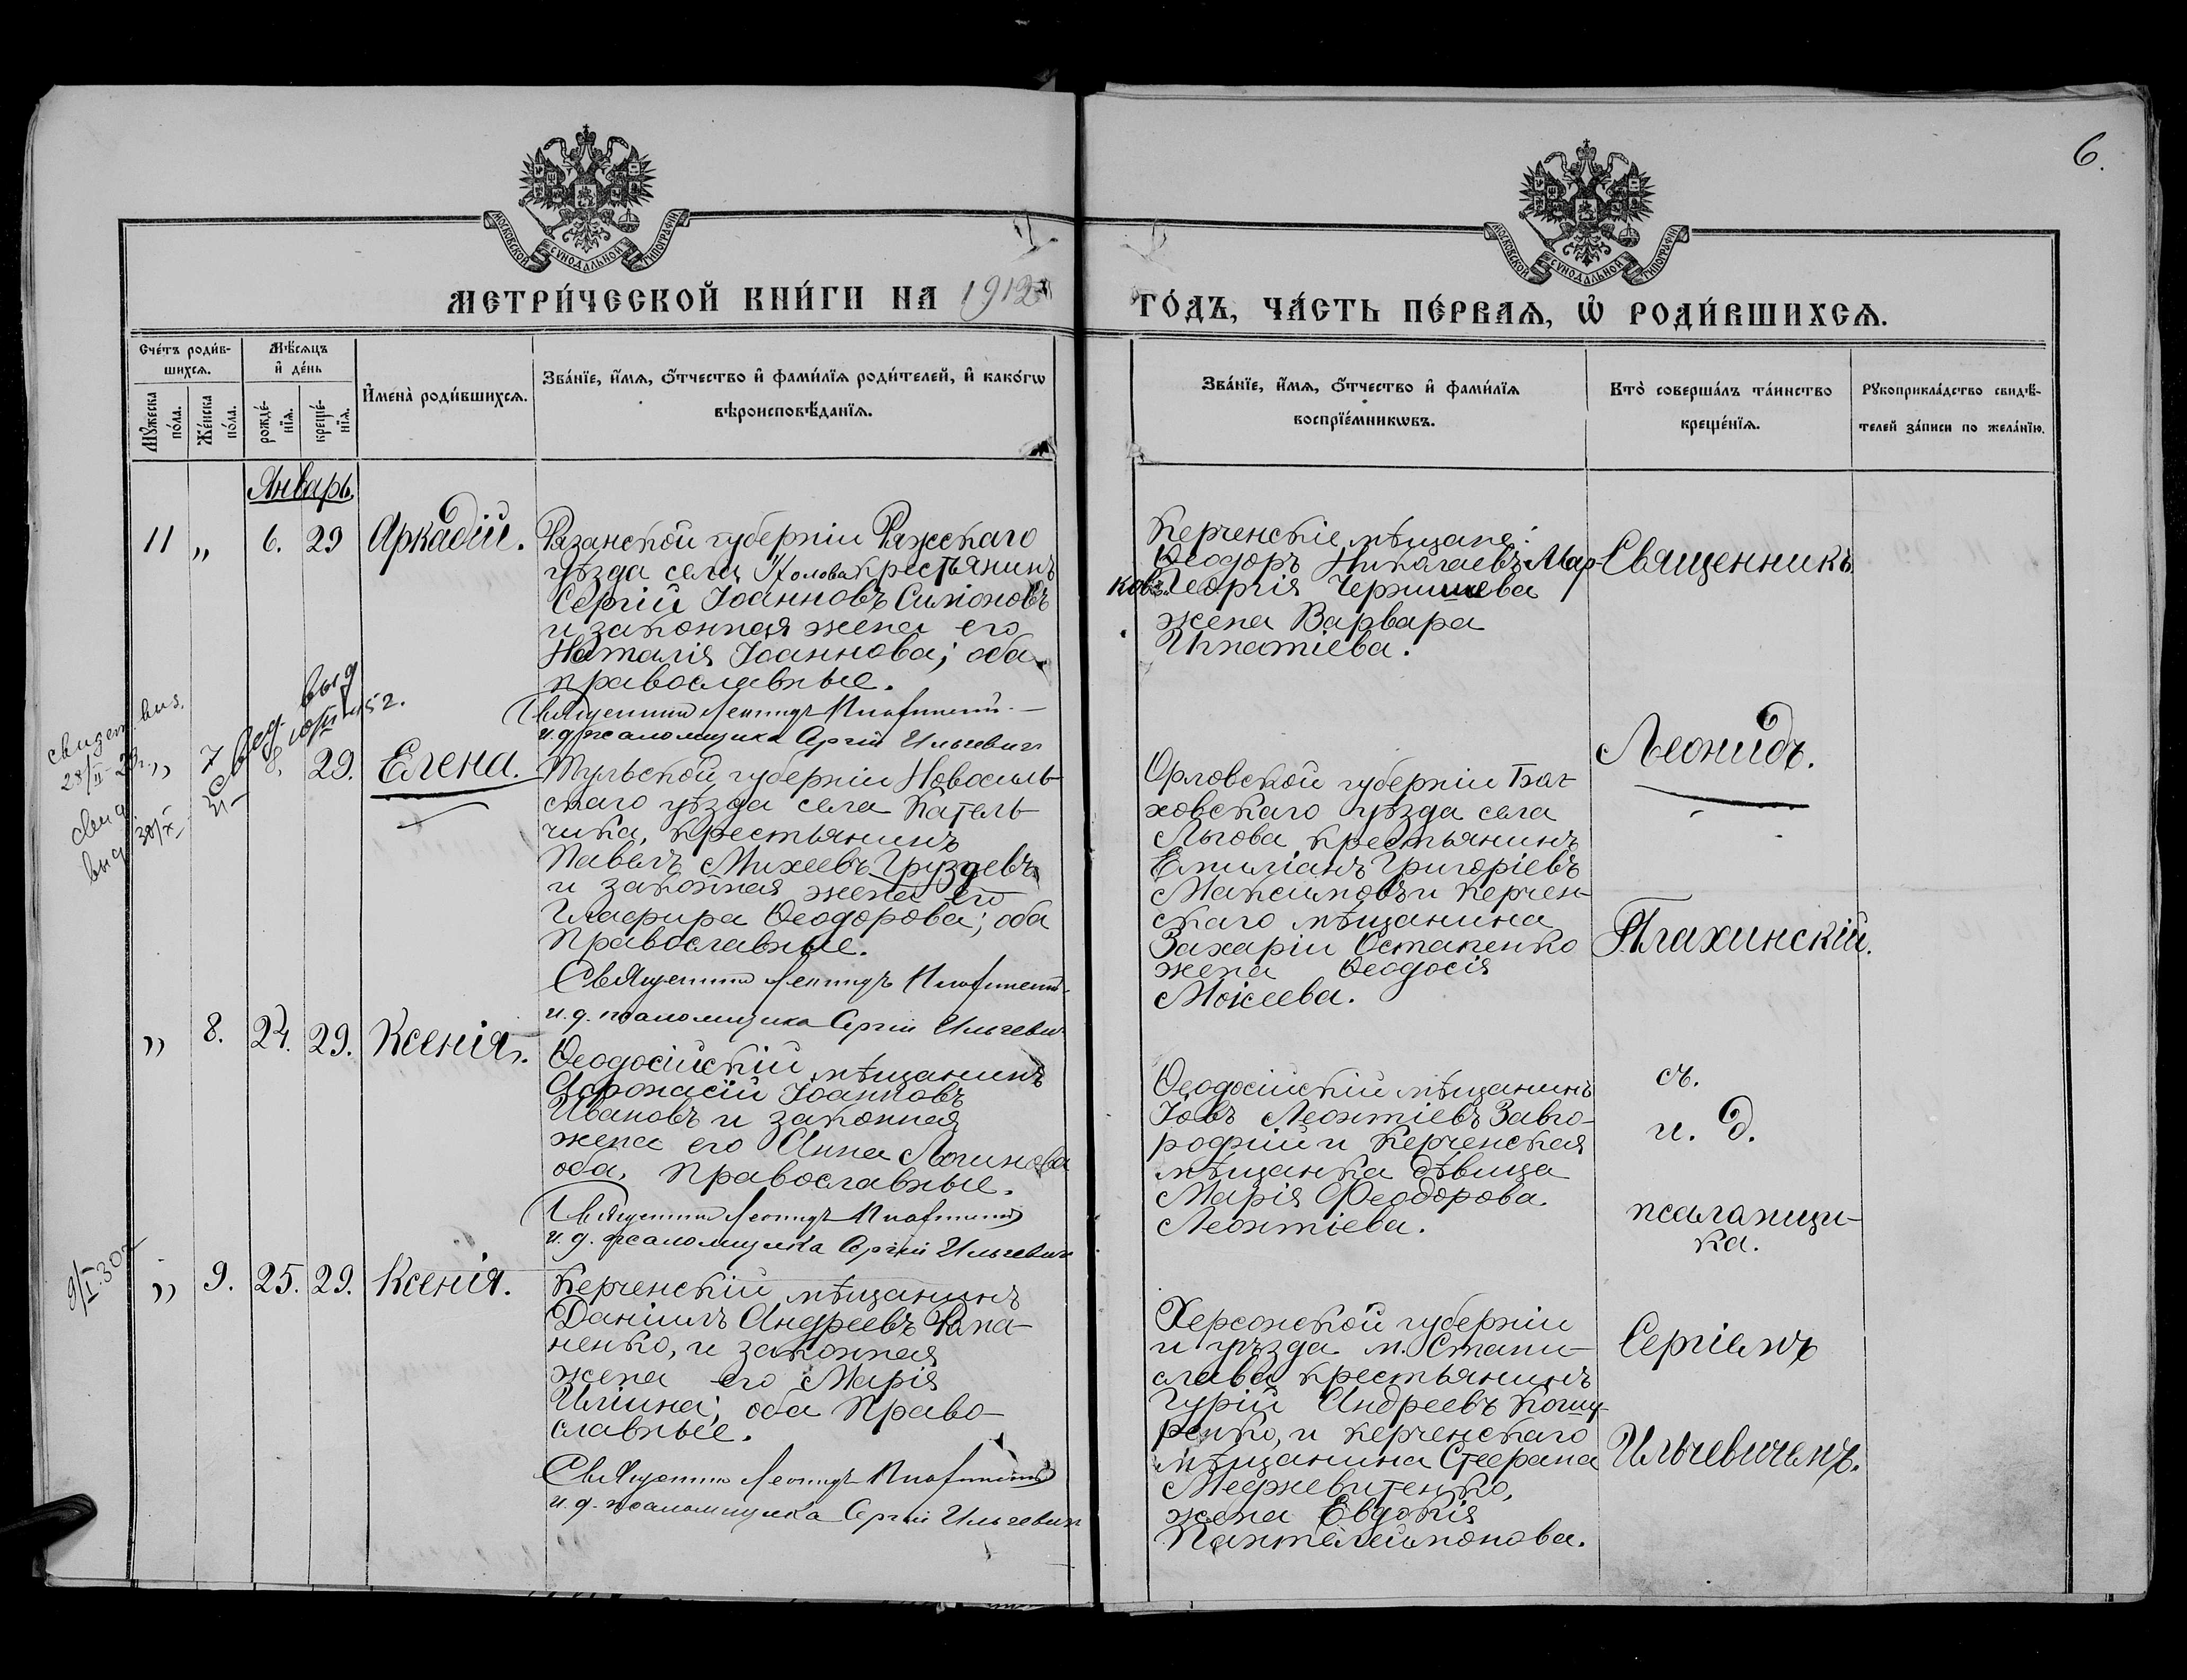 6.
МОСКОВСКОЙ СѴНОДАЛЬНОЙ ТИПОГРАФІИ
МОСКОВСКОЙ СѴНОДАЛЬНОЙ ТИПОГРАФІИ
МЕТРИ́ЧЕСКОЙ КНИ́ГИ НА 1912
ГО́ДЪ, ЧА́СТЬ ПЕ́РВАѦ, Ѡ҆ РОДИ́ВШИХСѦ.
Сче́тъ роди́в-
шихсѧ.
Мꙋжеска по́ла.
Же́нска по́ла.
Мѣ́сѧцъ
и҆ де́нь
рожде́-
нїѧ.
креще́-
нїѧ.
И҆мена̀ роди́вшихсѧ.
Зва́нїе, и҆́мѧ, ѻ҆́тчество и҆ фами́лїѧ роди́телей, и҆ како́гѡ
вѣроисповѣ́данїѧ.
Зва́нїе, и҆́мѧ, ѻ҆́тчество и҆ фами́лїѧ
воспрїе́мникѡвъ.
Кто̀ соверша́лъ та́инство
креще́нїѧ.
Рꙋкоприкла́дство свидѣ́-
телей за́писи по жела́нїю.
Январь
11 " 6. 29 Аркадій.
Рязанской губерніи Ряжскаго
уѣзда села крестьянинъ
Сергій Іоанновъ Симоновъ
и законная жена его
Наталія Іоаннова; оба
православные.
Священникъ Леонидъ
и. д. псаломщика Сергій Ильчевич
Керченскіе мѣщане:
Ѳеодоръ Николаевъ Мар-
ковъ Георгія Чернышева
жена Варвара
Игнатіева.
Священникъ
" 7 8. 29. Елена.
Тульской губерніи Новосиль-
скаго уѣзда села Катель-
чика, крестьянинъ
Павелъ Михеевъ Груздевъ
и законная жена его
Глафира Ѳеодорова; оба
Православные.
Священникъ Леонидъ
и. д. псаломщика Сергій Ильчевич
Орловской губерніи Бол-
ховскаго уѣзда села
Льгова крестьянинъ
Емиліанъ Григоріевъ
Максимовъ и Керчен-
скаго мѣщанина
Захаріи Остапенко
жена Ѳеодосія
Моисеева.
Леонидъ.
Плахинскій.
" 8. 24. 29. Ксенія.
Ѳеодосійскій мѣщанинъ
Аѳонасій Іоанновъ
Ивановъ и законная
жена его Анна Логинова
оба, Православные.
Священникъ Леонидъ
и. д. псаломщика Сергій Ильчевич
Ѳеодосійскій мѣщанинъ
Іовъ Леонтіевъ Заво-
родній и Керченская
мѣщанка дѣвица
Марія Ѳеодорова
Леонтіева.
съ.
и. д.
псаломщи-
ка.
9/I 30 " 9. 25. 29. Ксенія.
Керченскій мѣщанинъ
Даніилъ Андреевъ Рапа-
ненко, и законная
жена его Марія
Иліина; оба Право-
славные.
Священникъ Леонидъ
и. д. псаломщика Сергій Ильчевич
Херсонской губерніи
и уѣзда м. Стани-
слава крестьянинъ
Гурій Андреевъ Кошу-
ренко, и керченскаго
мѣщанина Стефана
жена Евдокія
Пантелеимонова.
Сергіемъ
Ильчевичемъ.